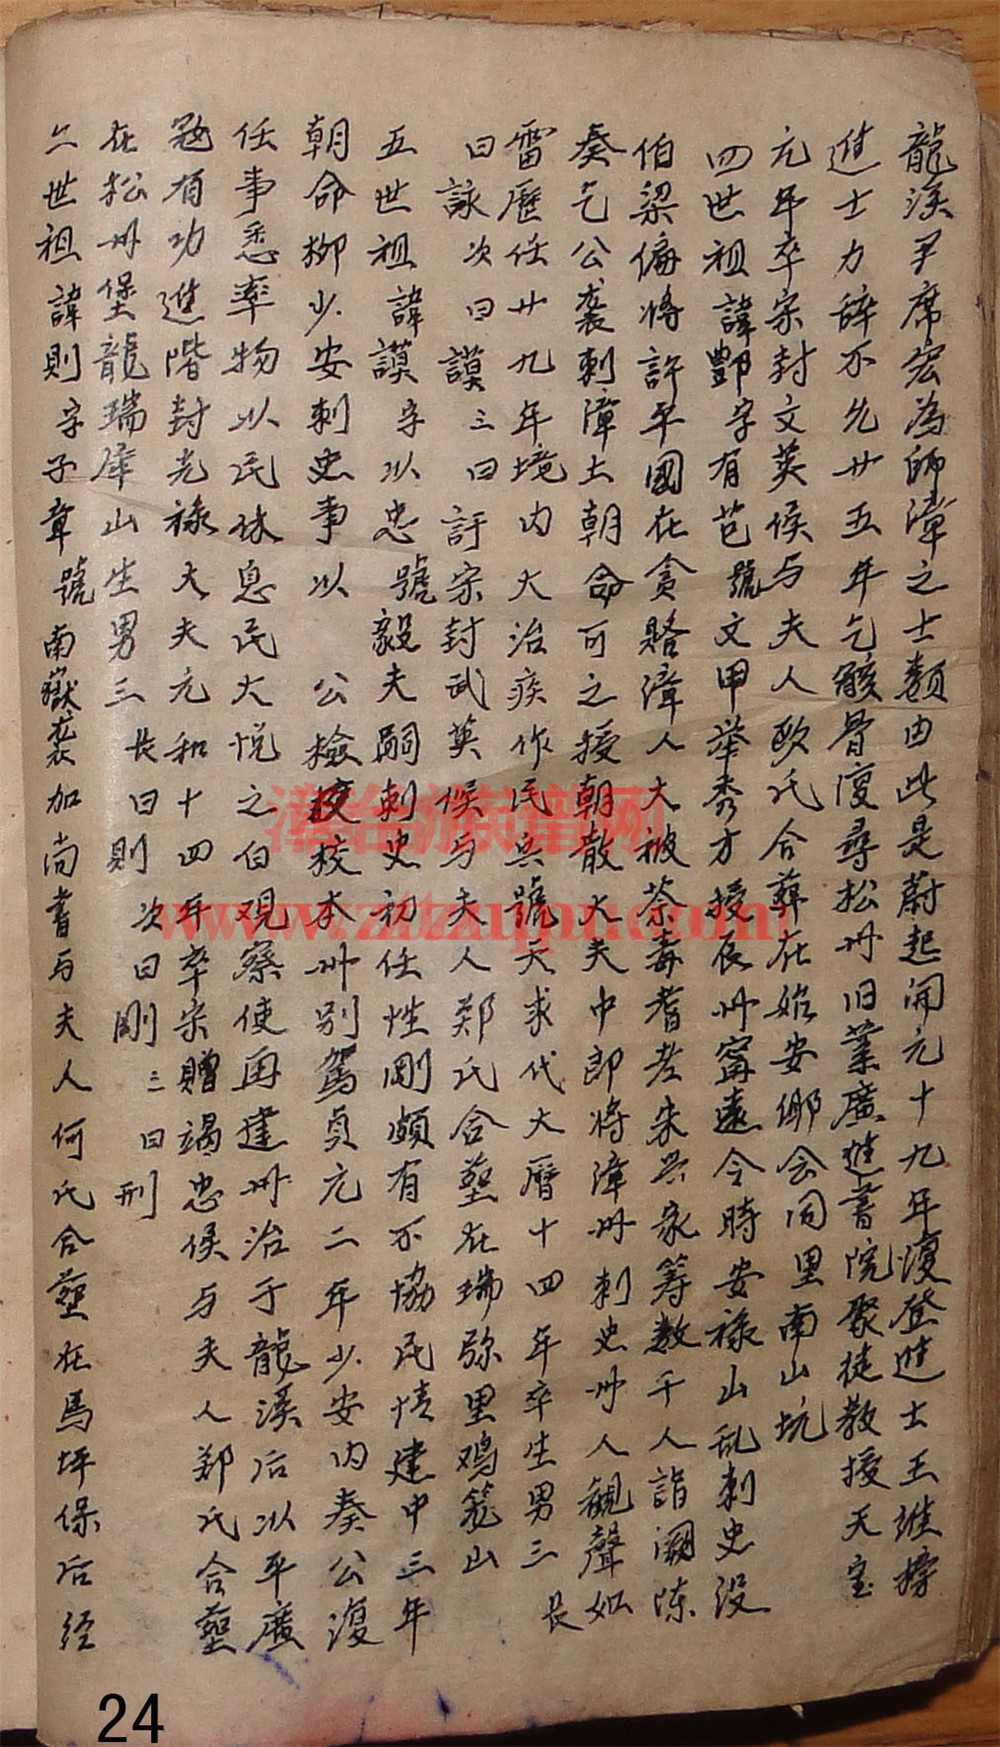 龍溪尹席宏為師漳之士類由此是蔚起開元十九年復登進士王維榜
進士力辞不允廿五年乞骸骨復尋松州旧業廣進書院聚徒教授天宝
元年卒宗封文英候与夫人欧氏合葬在始安鄉会同里南山坑
四世祖諱酆字有芑號文甲举秀才授辰州寧遠令時安禄山乱刺史没
伯梁偏将許平國在貪賂漳人大被荼毒耆老朱兴家筹数千人詣闕陈
奏乞公袭刺漳土朝命可之授朝散大夫中郎将漳州刺史州人觀聲如
雷歷任廿九年境内大治疾作民兵號天求代大曆十四年卒生男三長
曰詠次曰謨三曰訏宗封武英候与夫人郑氏合塟在瑞弥里鸡笼山
五世祖諱謨字以忠號毅夫嗣刺史初任性剛頗有不協民情建中三年
朝命柳少安刺史事以公檢校本州别駕貞元二年少安内奏公復
任事悉率物以民休息民大悦之白观察使再建州治于龍溪后以平廣
冦有功進階封光禄大夫元和十四年卒宗赠竭忠候与夫人郑氏合塟
在松州堡龍瑞庫山生男三長曰則次曰剛三曰刑
六世祖諱則字子章號南嶽袭加尚書与夫人何氏合塟在馬坪保后经
漳台族譜网
www.ztzupu.com
24